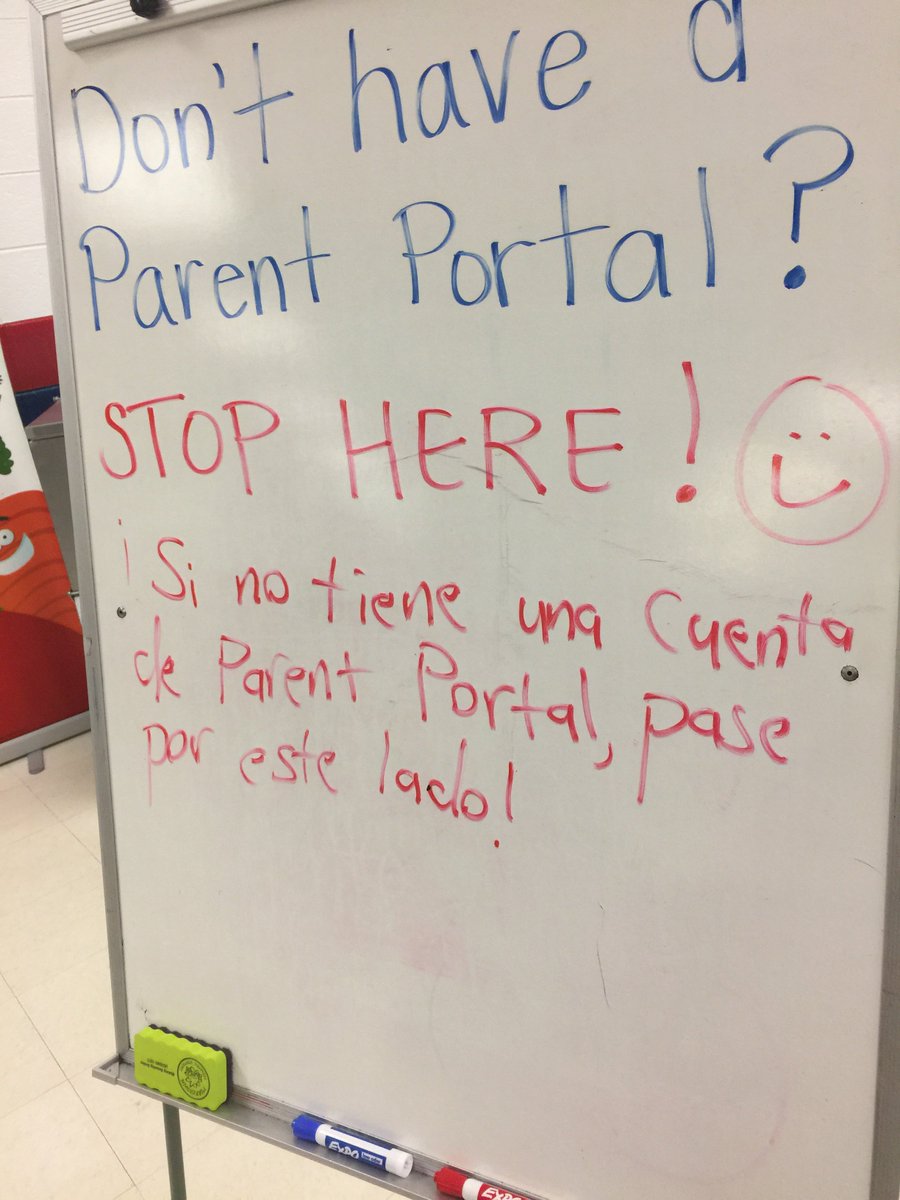 Don't have a
Parent Portal?
STOP HERE!
¡Si no tiene una cuenta
de Parent Portal, pase
por este lado!
EXPO
EXPO